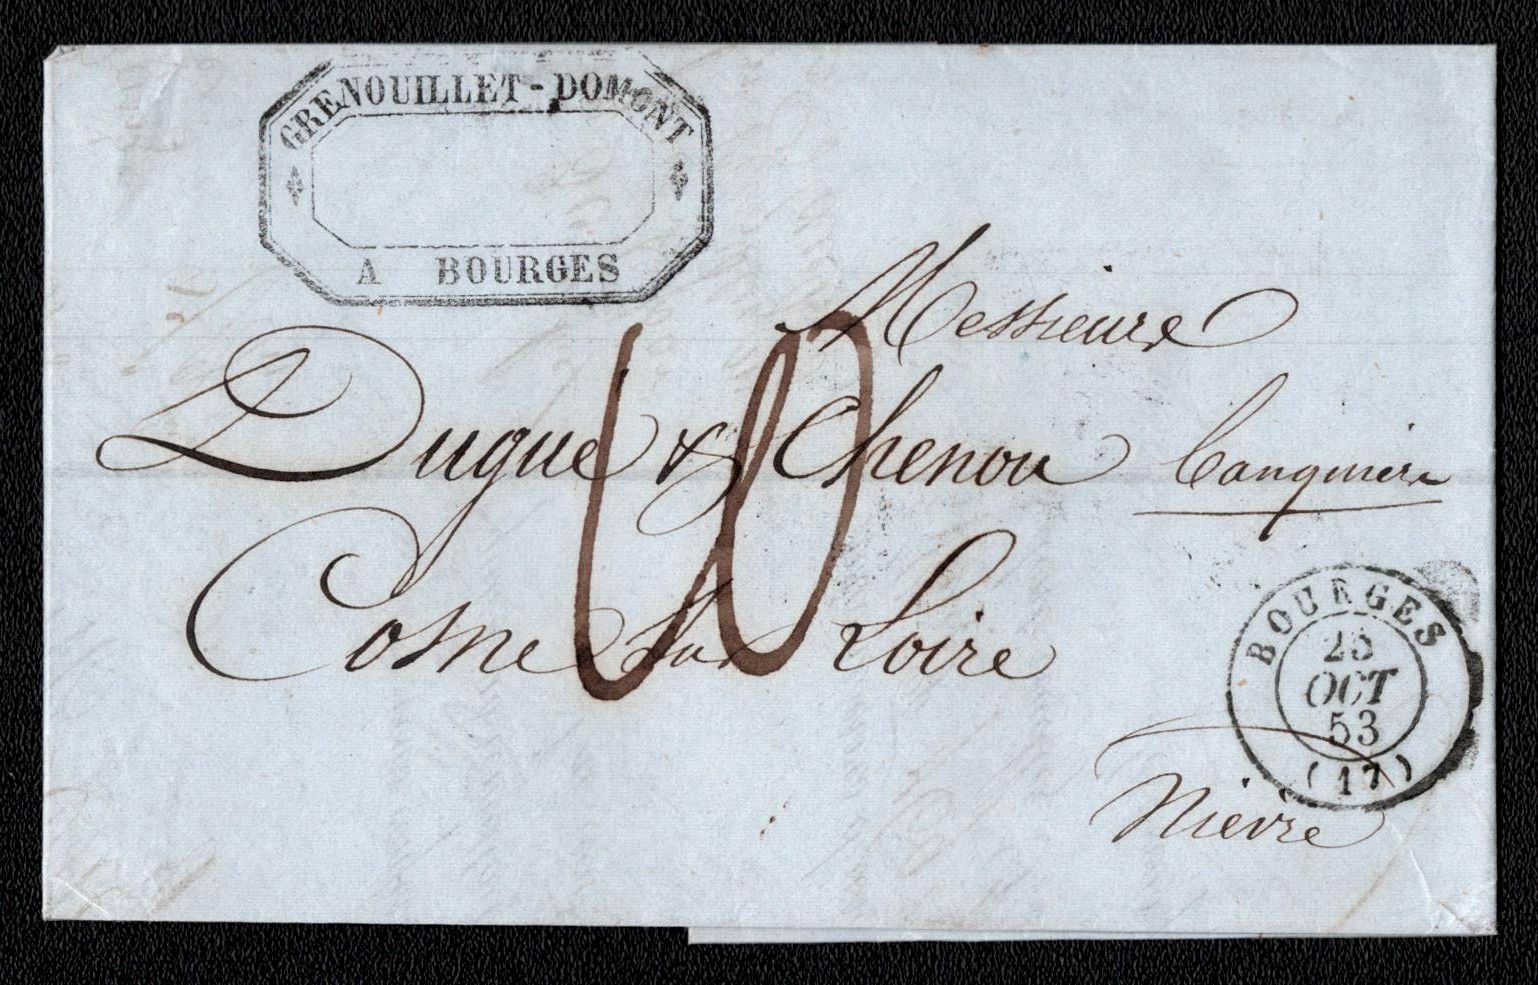 GRENOUILLET - DOMONT
A BOURGES
Messieurs
Dugue & Chenou banquiers
Cosne sur Loire
Nièvre
BOURGES
OCT
53
(17)